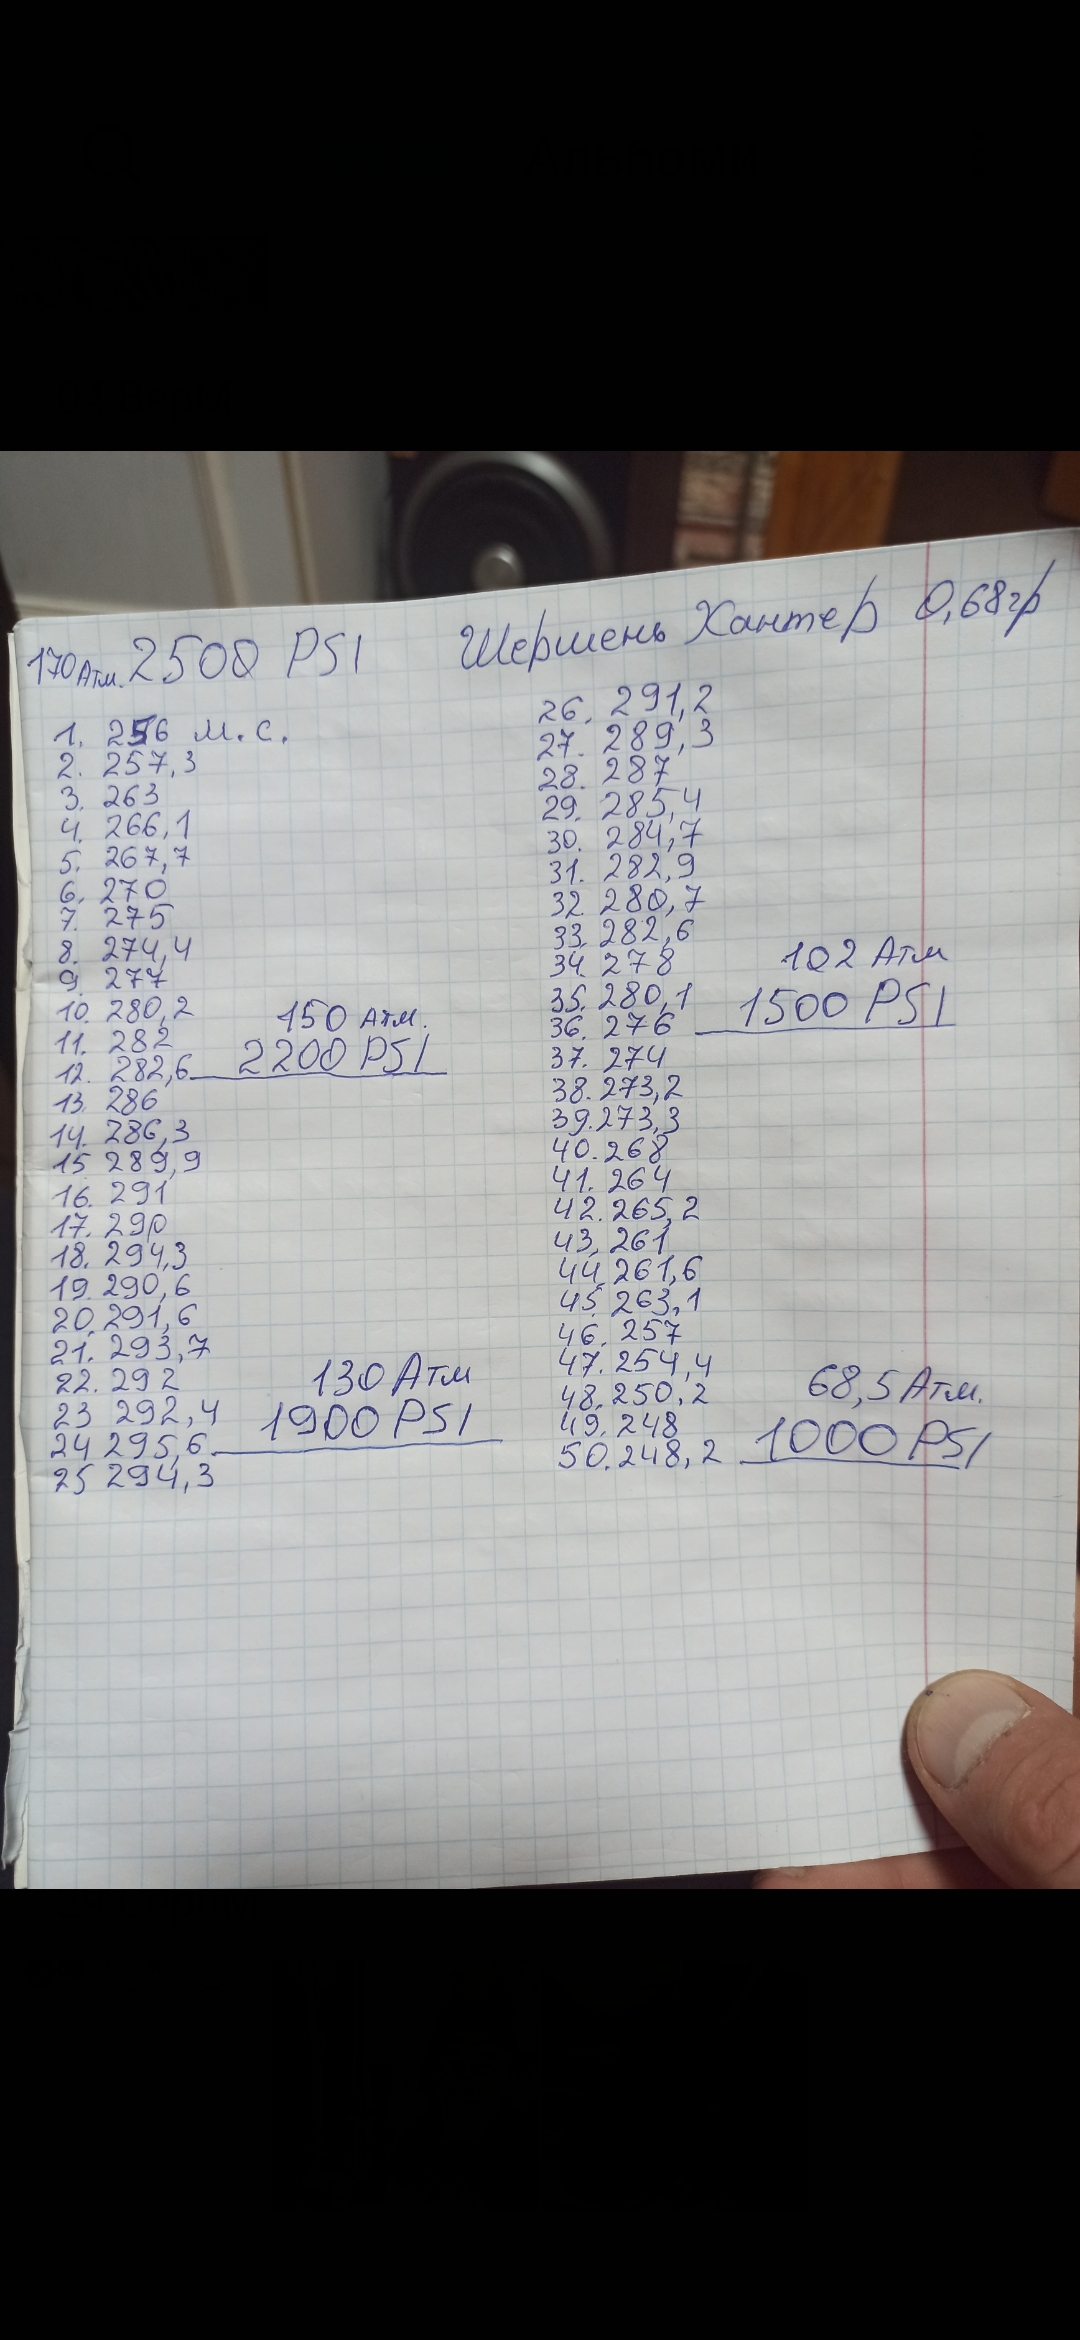 170 Атм. 2500 PSI Шершень Хантер 0,68гр
1. 256 м.с.
2. 257,3
3. 263
4. 266,1
5. 267,7
6. 270
7. 275
8. 274,4
9. 277
10. 280,2
11. 282
12. 282,6
150 Атм.
2200 PSI
13. 286
14. 286,3
15 289,9
16. 291
17. 290
18. 294,3
19. 290,6
20. 291,6
21. 293,7
22. 292
23 292,4
24 295,6
130 Атм
1900 PSI
25 294,3
26. 291,2
27. 289,3
28. 287
29. 285,4
30. 284,7
31. 282,9
32. 280,7
33. 282,6
34. 278
35. 280,1
36. 276
102 Атм
1500 PSI
37. 274
38. 273,2
39. 273,3
40. 268
41. 264
42. 265,2
43. 261
44. 261,6
45. 263,1
46. 257
47. 254,4
48. 250,2
49. 248
50. 248,2
68,5 Атм.
1000 PSI